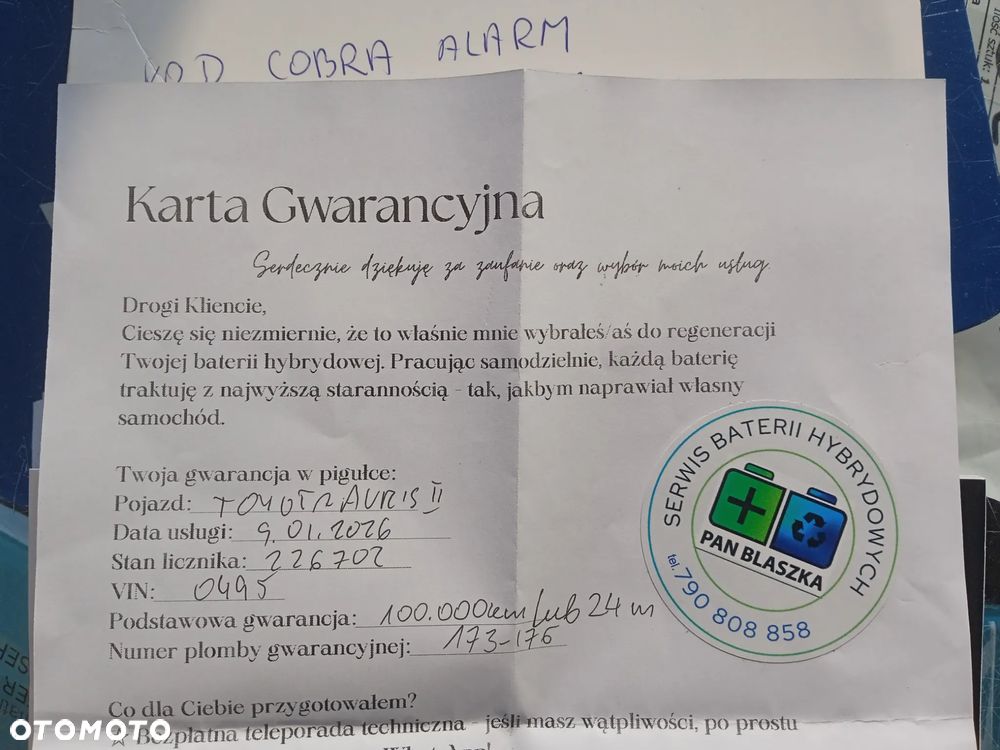 KOD COBRA ALARM
Karta Gwarancyjna
Serdecznie dziękuję za zaufanie oraz wybór moich usług.
Drogi Kliencie,
Cieszę się niezmiernie, że to właśnie mnie wybrałeś/aś do regeneracji
Twojej baterii hybrydowej. Pracując samodzielnie, każdą baterię
traktuję z najwyższą starannością - tak, jakbym naprawiał własny
samochód.
Twoja gwarancja w pigułce:
Pojazd: TOYOTA AURIS II
Data usługi: 9.01.2026
Stan licznika: 226702
VIN: 0495
Podstawowa gwarancja: 100.000km lub 24 m
Numer plomby gwarancyjnej: 173-176
SERWIS BATERII HYBRYDOWYCH
PAN BLASZKA
tel. 790 808 858
Co dla Ciebie przygotowałem?
☆ Bezpłatna teleporada techniczna - jeśli masz wątpliwości, po prostu
ILOŚĆ SZTUK: 1
OTOMOTO